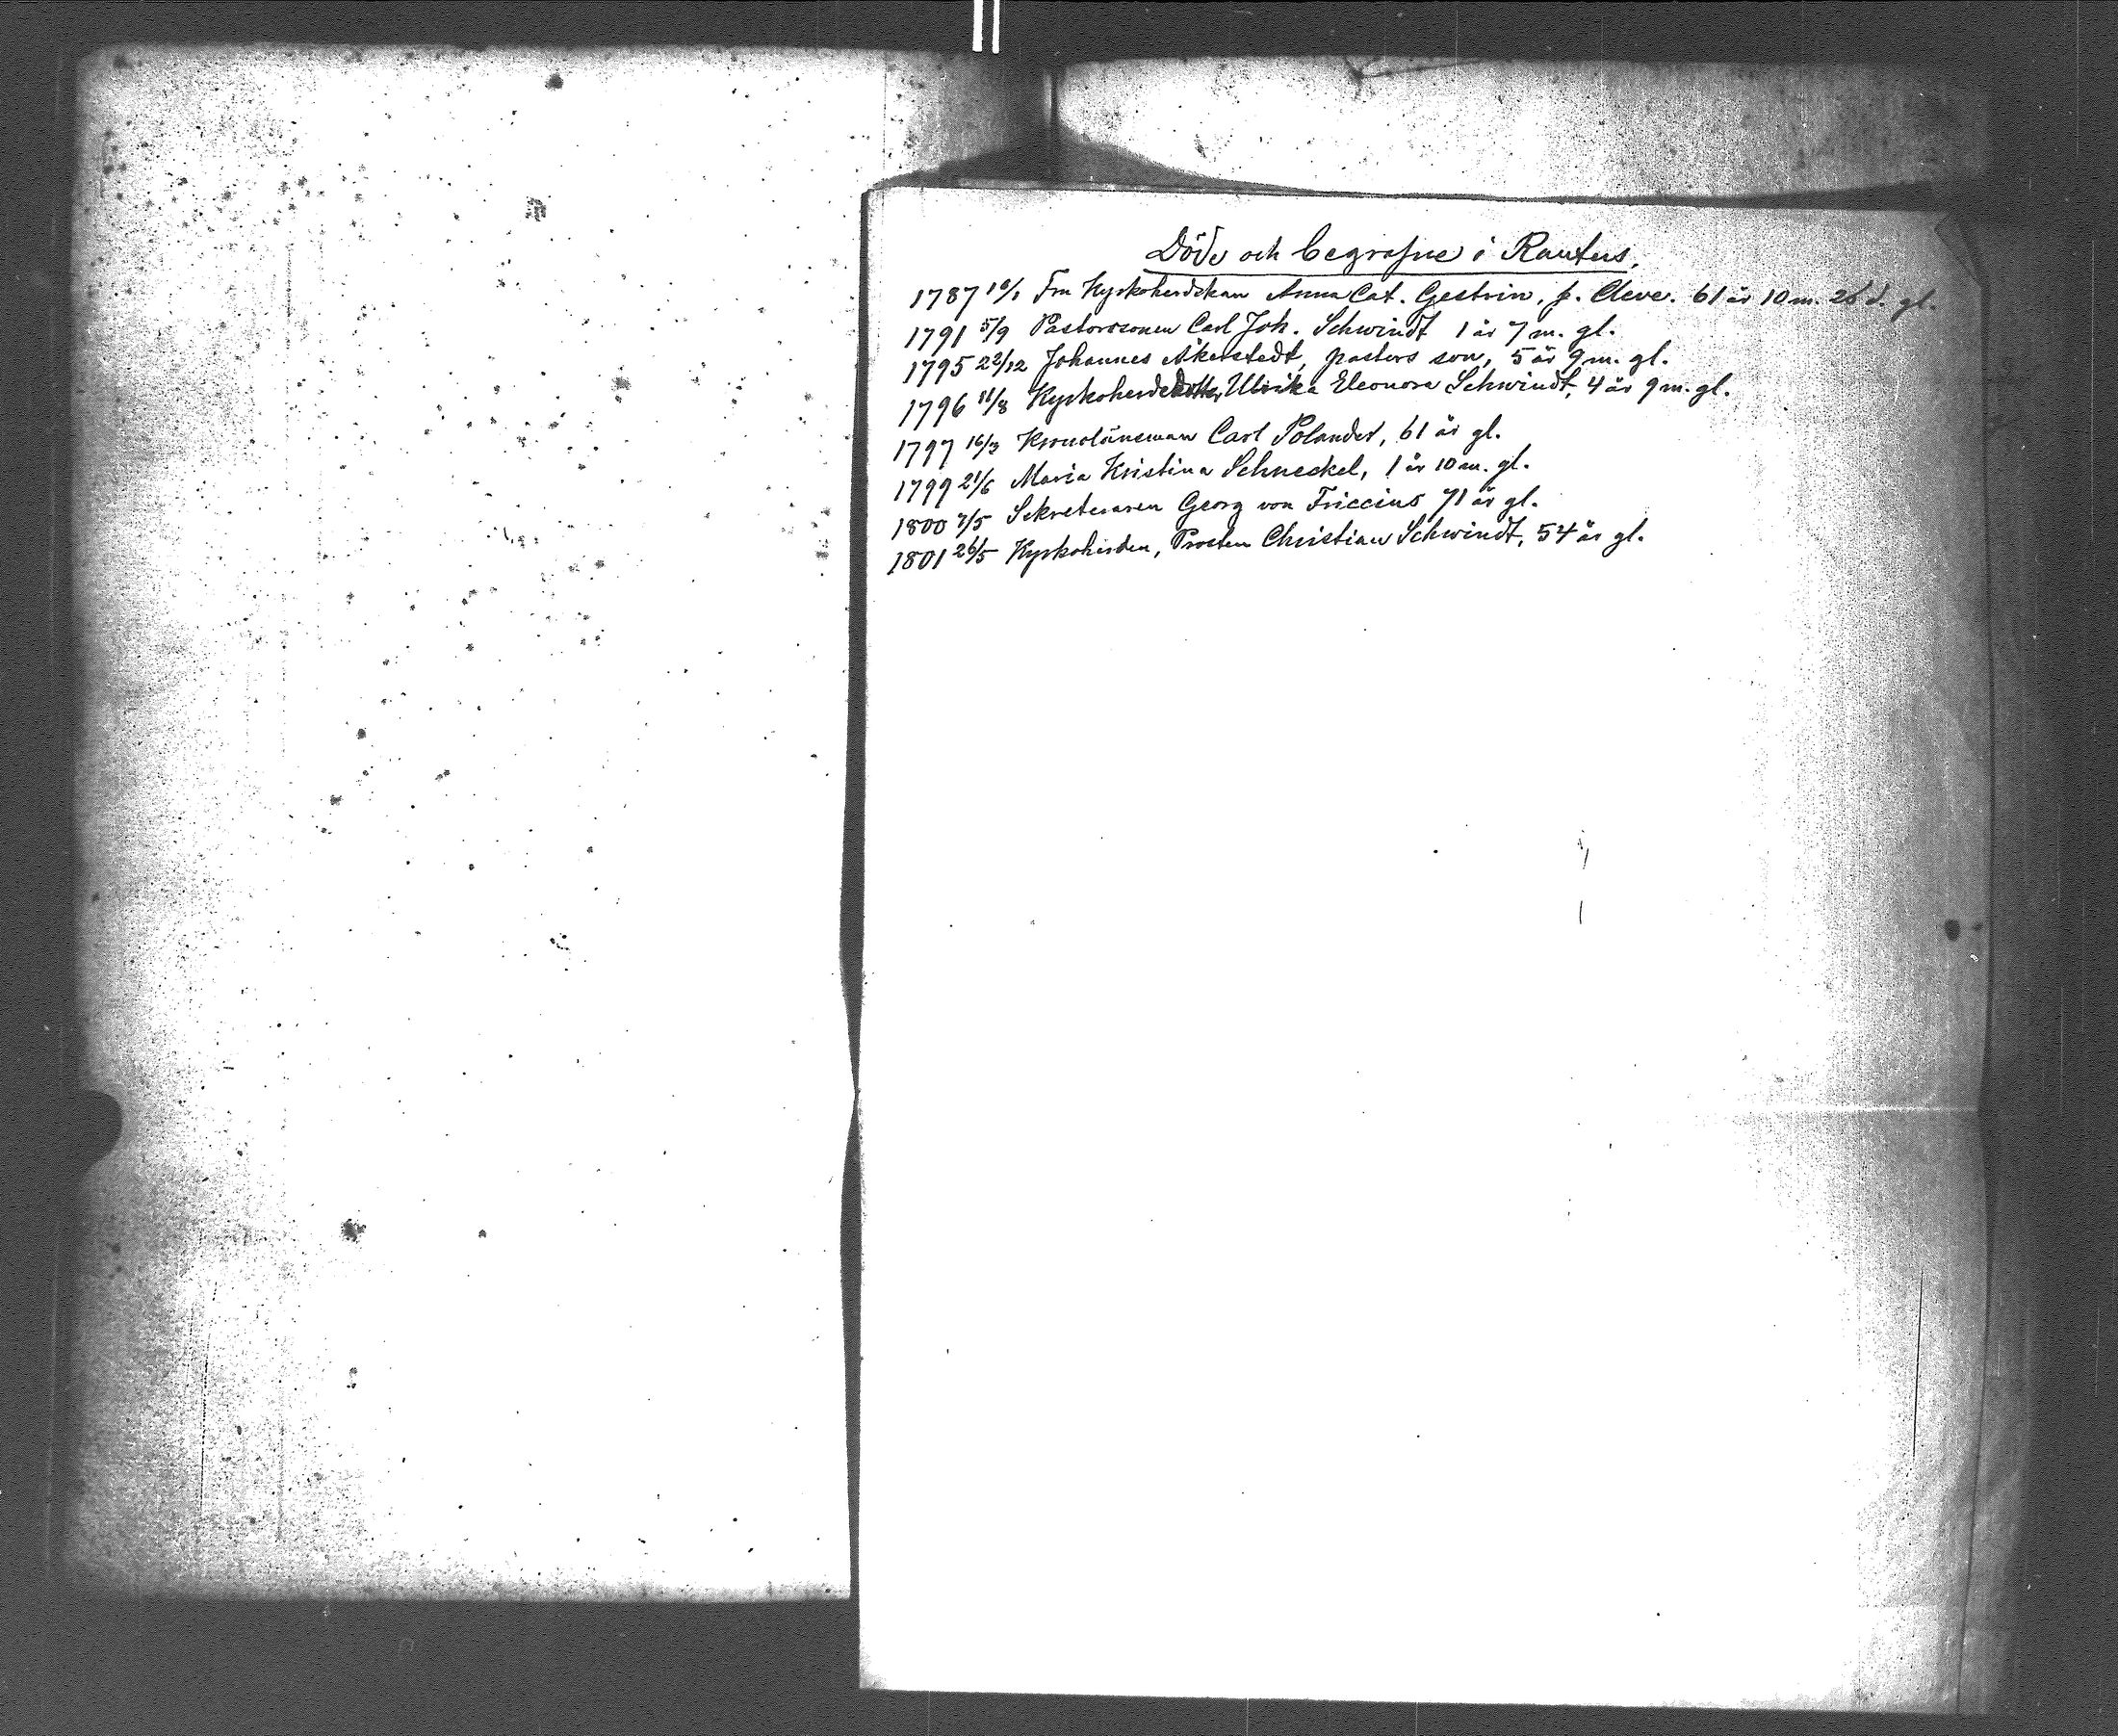 Döde och begrafne i Rautus.
1787 10/1 Fru Kyrkoherdskan Anna Cat. Gestrin, f. Cleve. 61 år 10 m. 26 d. gl.
1791 5/9 Pastorssonen Carl Joh. Schwindt 1 år 7 m. gl.
1795 22/12 Johannes Åkerstedt, pastors son, 5 år 9 m. gl.
1796 11/8 Kyrkoherdedotter Ulrika Eleonora Schwindt, 4 år 9 m. gl.
1797 16/3 Kronolänsman Carl Polander, 61 år gl.
1799 21/6 Maria Kristina Schneckel, 1 år 10 m. gl.
1800 7/5 Sekreteraren Georg von Friccius 71 år gl.
1801 26/5 Kyrkoherden, Prosten Christian Schwindt, 54 år gl.